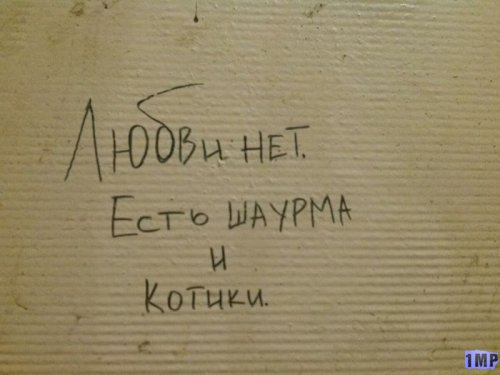 Любви нет.
Есть шаурма
и
котики.
1MP